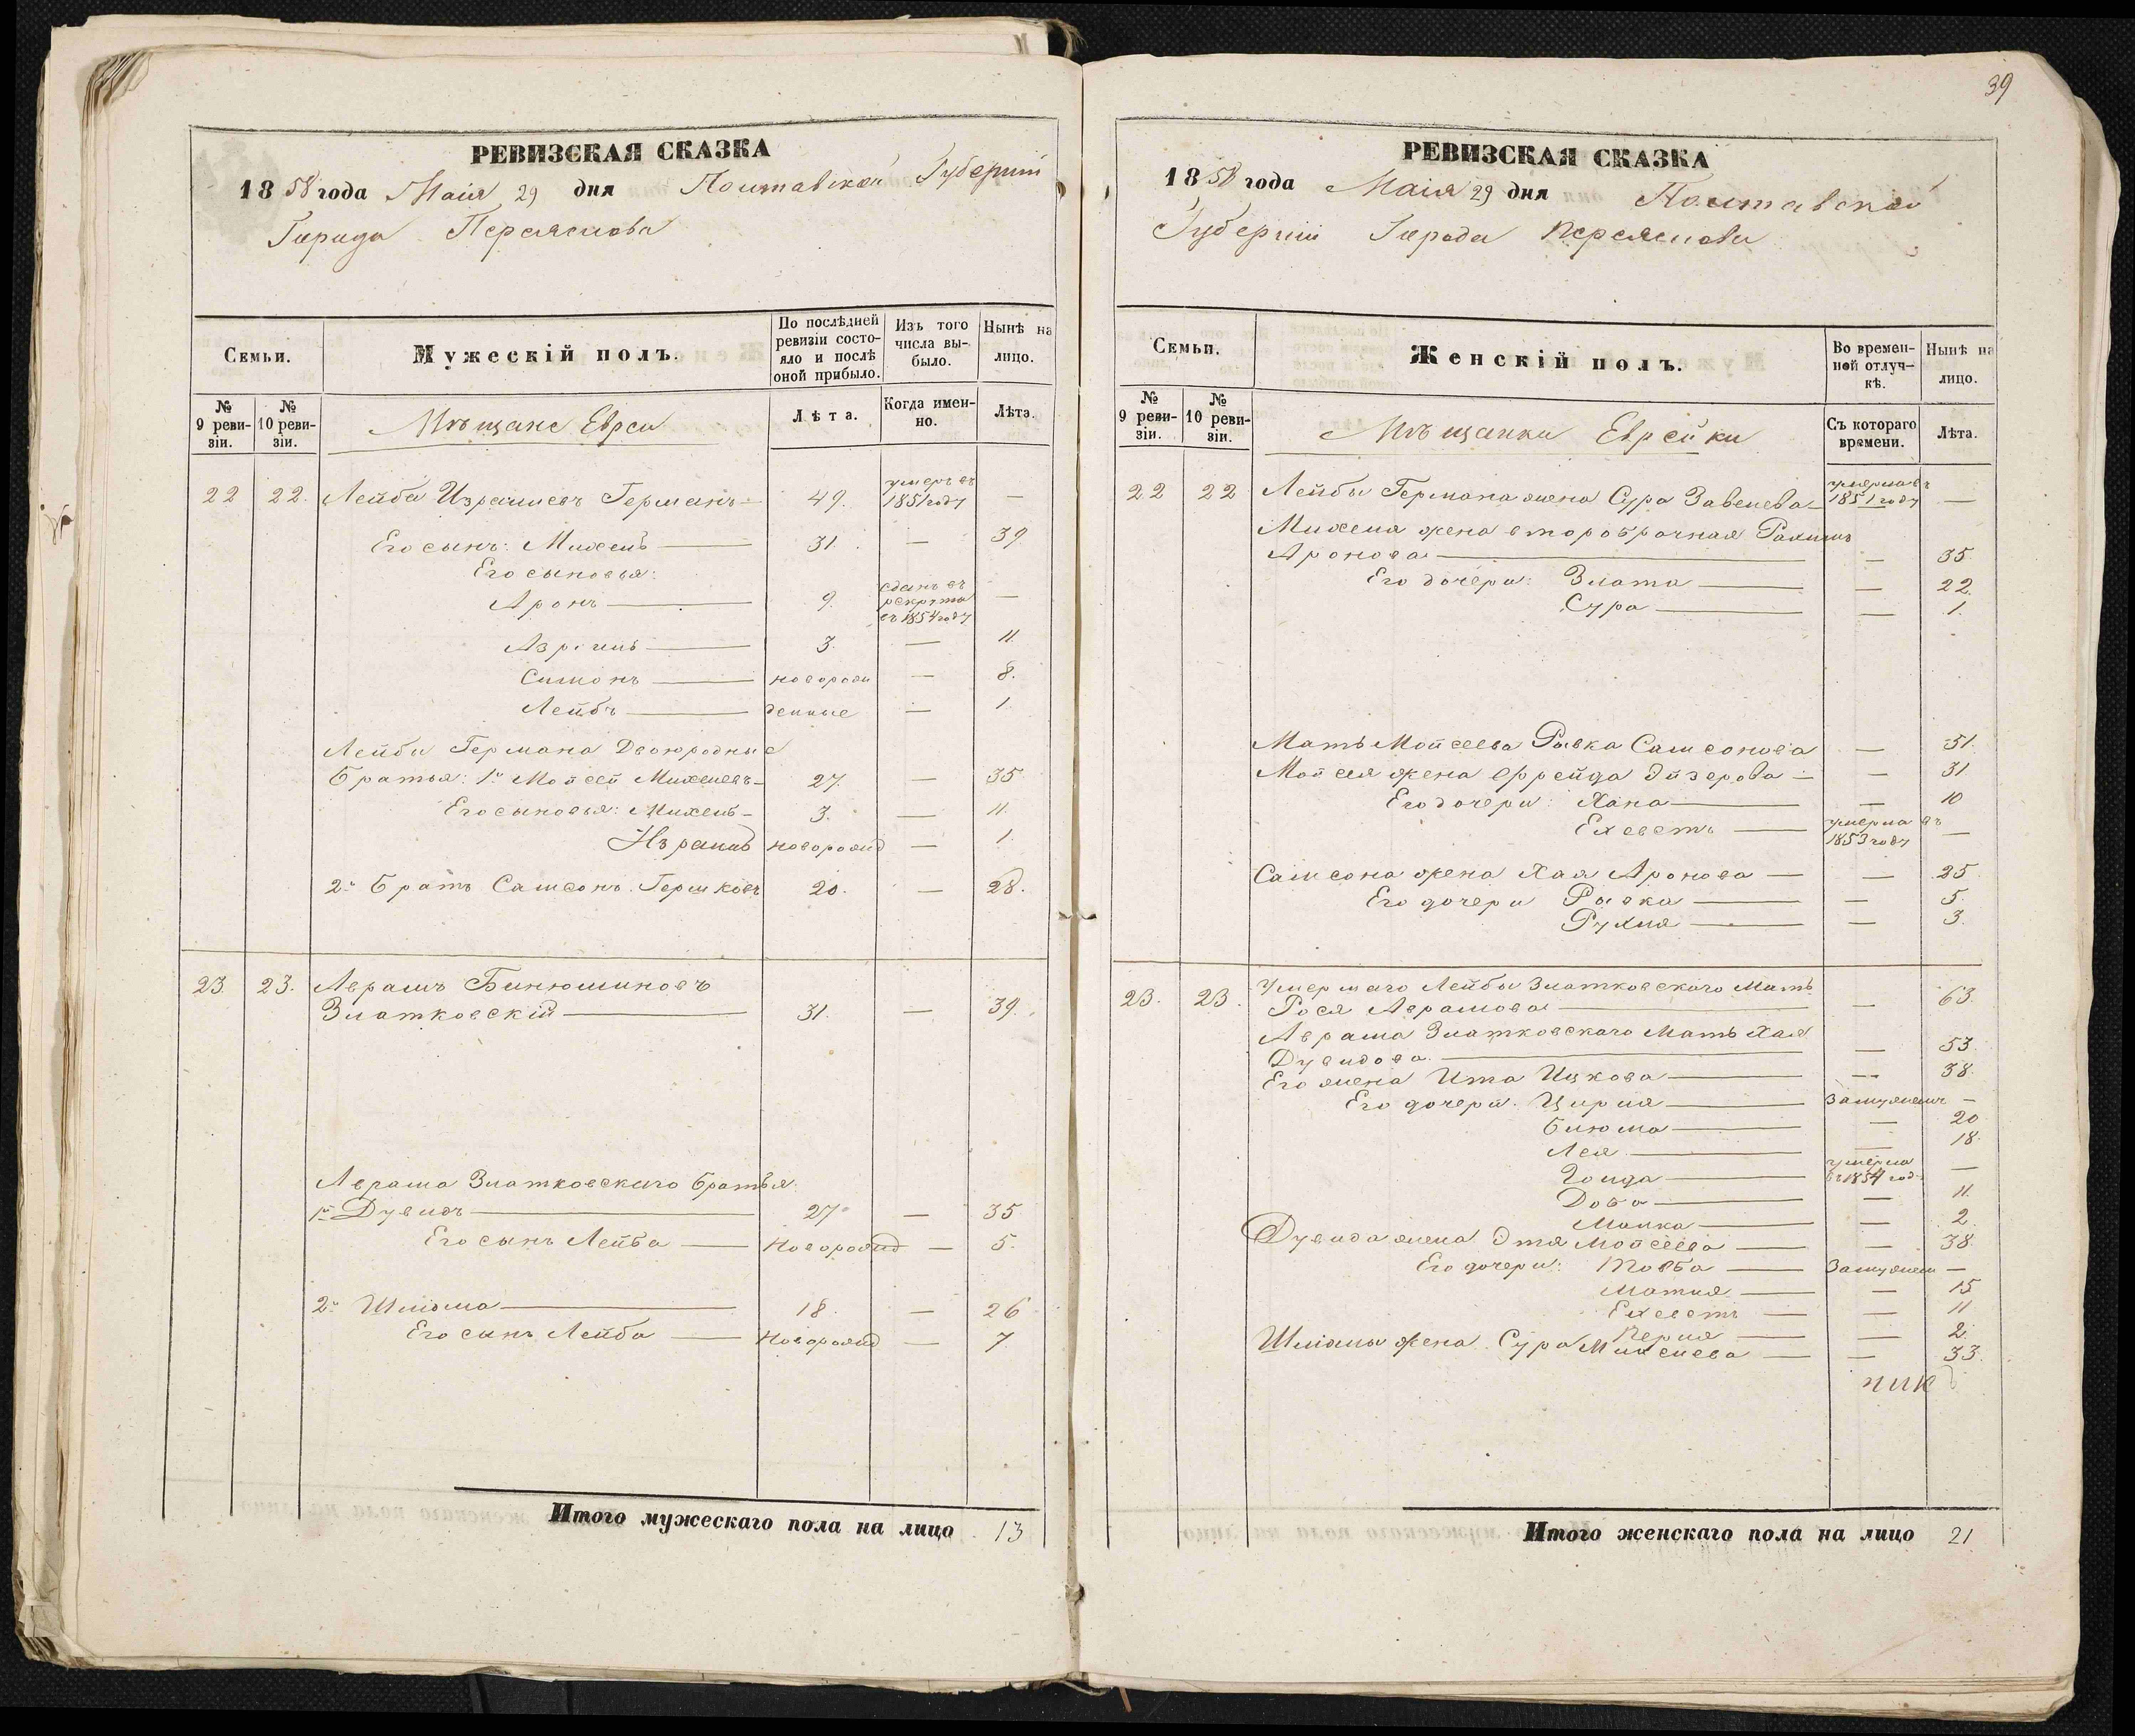 РЕВИЗСКАЯ СКАЗКА
18 58 года Маія 29 дня Полтавской Губерніи
Города Переяслова
Семьи.
Мужескій полъ.
По послѣдней ревизіи состояло и послѣ оной прибыло.
Изъ того числа выбыло.
Нынѣ на лицо.
№ 9 ревизіи.
№ 10 ревизіи.
Мѣщане Евреи
Лѣта.
Когда именно.
Лѣта.
22 22. Лейба Израилевъ Германъ 49. умеръ въ 1851 году —
Его сынъ: Михель 31. — 39
Его сыновья:
Аронъ 9. сданъ въ рекрута въ 1854 году —
Азріиль 3. — 11.
Симонъ новорож — 8.
Лейбъ денные — 1
Лейбы Германа Двоюродные
Братья: 1й Мойсей Михелевъ 27. — 35
Его сыновья: Михель 3. — 11.
Израиль новорожд — 1.
2й Братъ Самсонъ Гершковъ 20. — 28.
23 23. Аврамъ Бинюминовъ
Златковскій 31. — 39.
Аврама Златковскаго братья
1й Дувидъ 27 — 35
Его сынъ Лейба Новорожд — 5.
2й Шліома 18. — 26
Его сынъ Лейба Новорожд — 7
Итого мужескаго пола на лицо 13
39
РЕВИЗСКАЯ СКАЗКА
18 58 года Маія 29 дня Полтавской
Губерніи Города Переяслова
Семьи.
Женскій полъ.
Во временной отлучкѣ.
Нынѣ на лицо.
№ 9 ревизіи.
№ 10 ревизіи.
Мѣщанки Еврейки
Съ котораго времени.
Лѣта.
22 22 Лейбы Германа жена Сура Завелева умерла въ 1851 году —
Михеля жена второбрачная Рахиль
Аронова — 35
Его дочери: Злата — 22.
Сура — 1.
Мать Мойсеева Ривка Самсонова — 51.
Мойсея жена Фрейда Эйзерова — 31
Его дочери: Хана — 10
Ехеветъ умерла въ 1853 году —
Самсона жена Хая Аронова — 25.
Его дочери Ривка — 5.
Рухля — 3.
23. 23. Умершаго Лейбы Златковскаго Мать
Рося Аврамова — 63.
Аврама Златковскаго Мать Хая
Дувидова — 53.
Его жена Ита Ицкова — 38.
Его дочери: Цирля Замужемъ —
Блюма — 20
Лея — 18.
Голда умерла въ 1854 год —
Доба — 11.
Малка — 2.
Дувида жена Этя Мойсеева — 38.
Его дочери: Товба Замужем —
Матля — 15
Ехеветъ — 11
Перля — 2.
Шліомы жена Сура Михелева — 33.
Итого женскаго пола на лицо 21